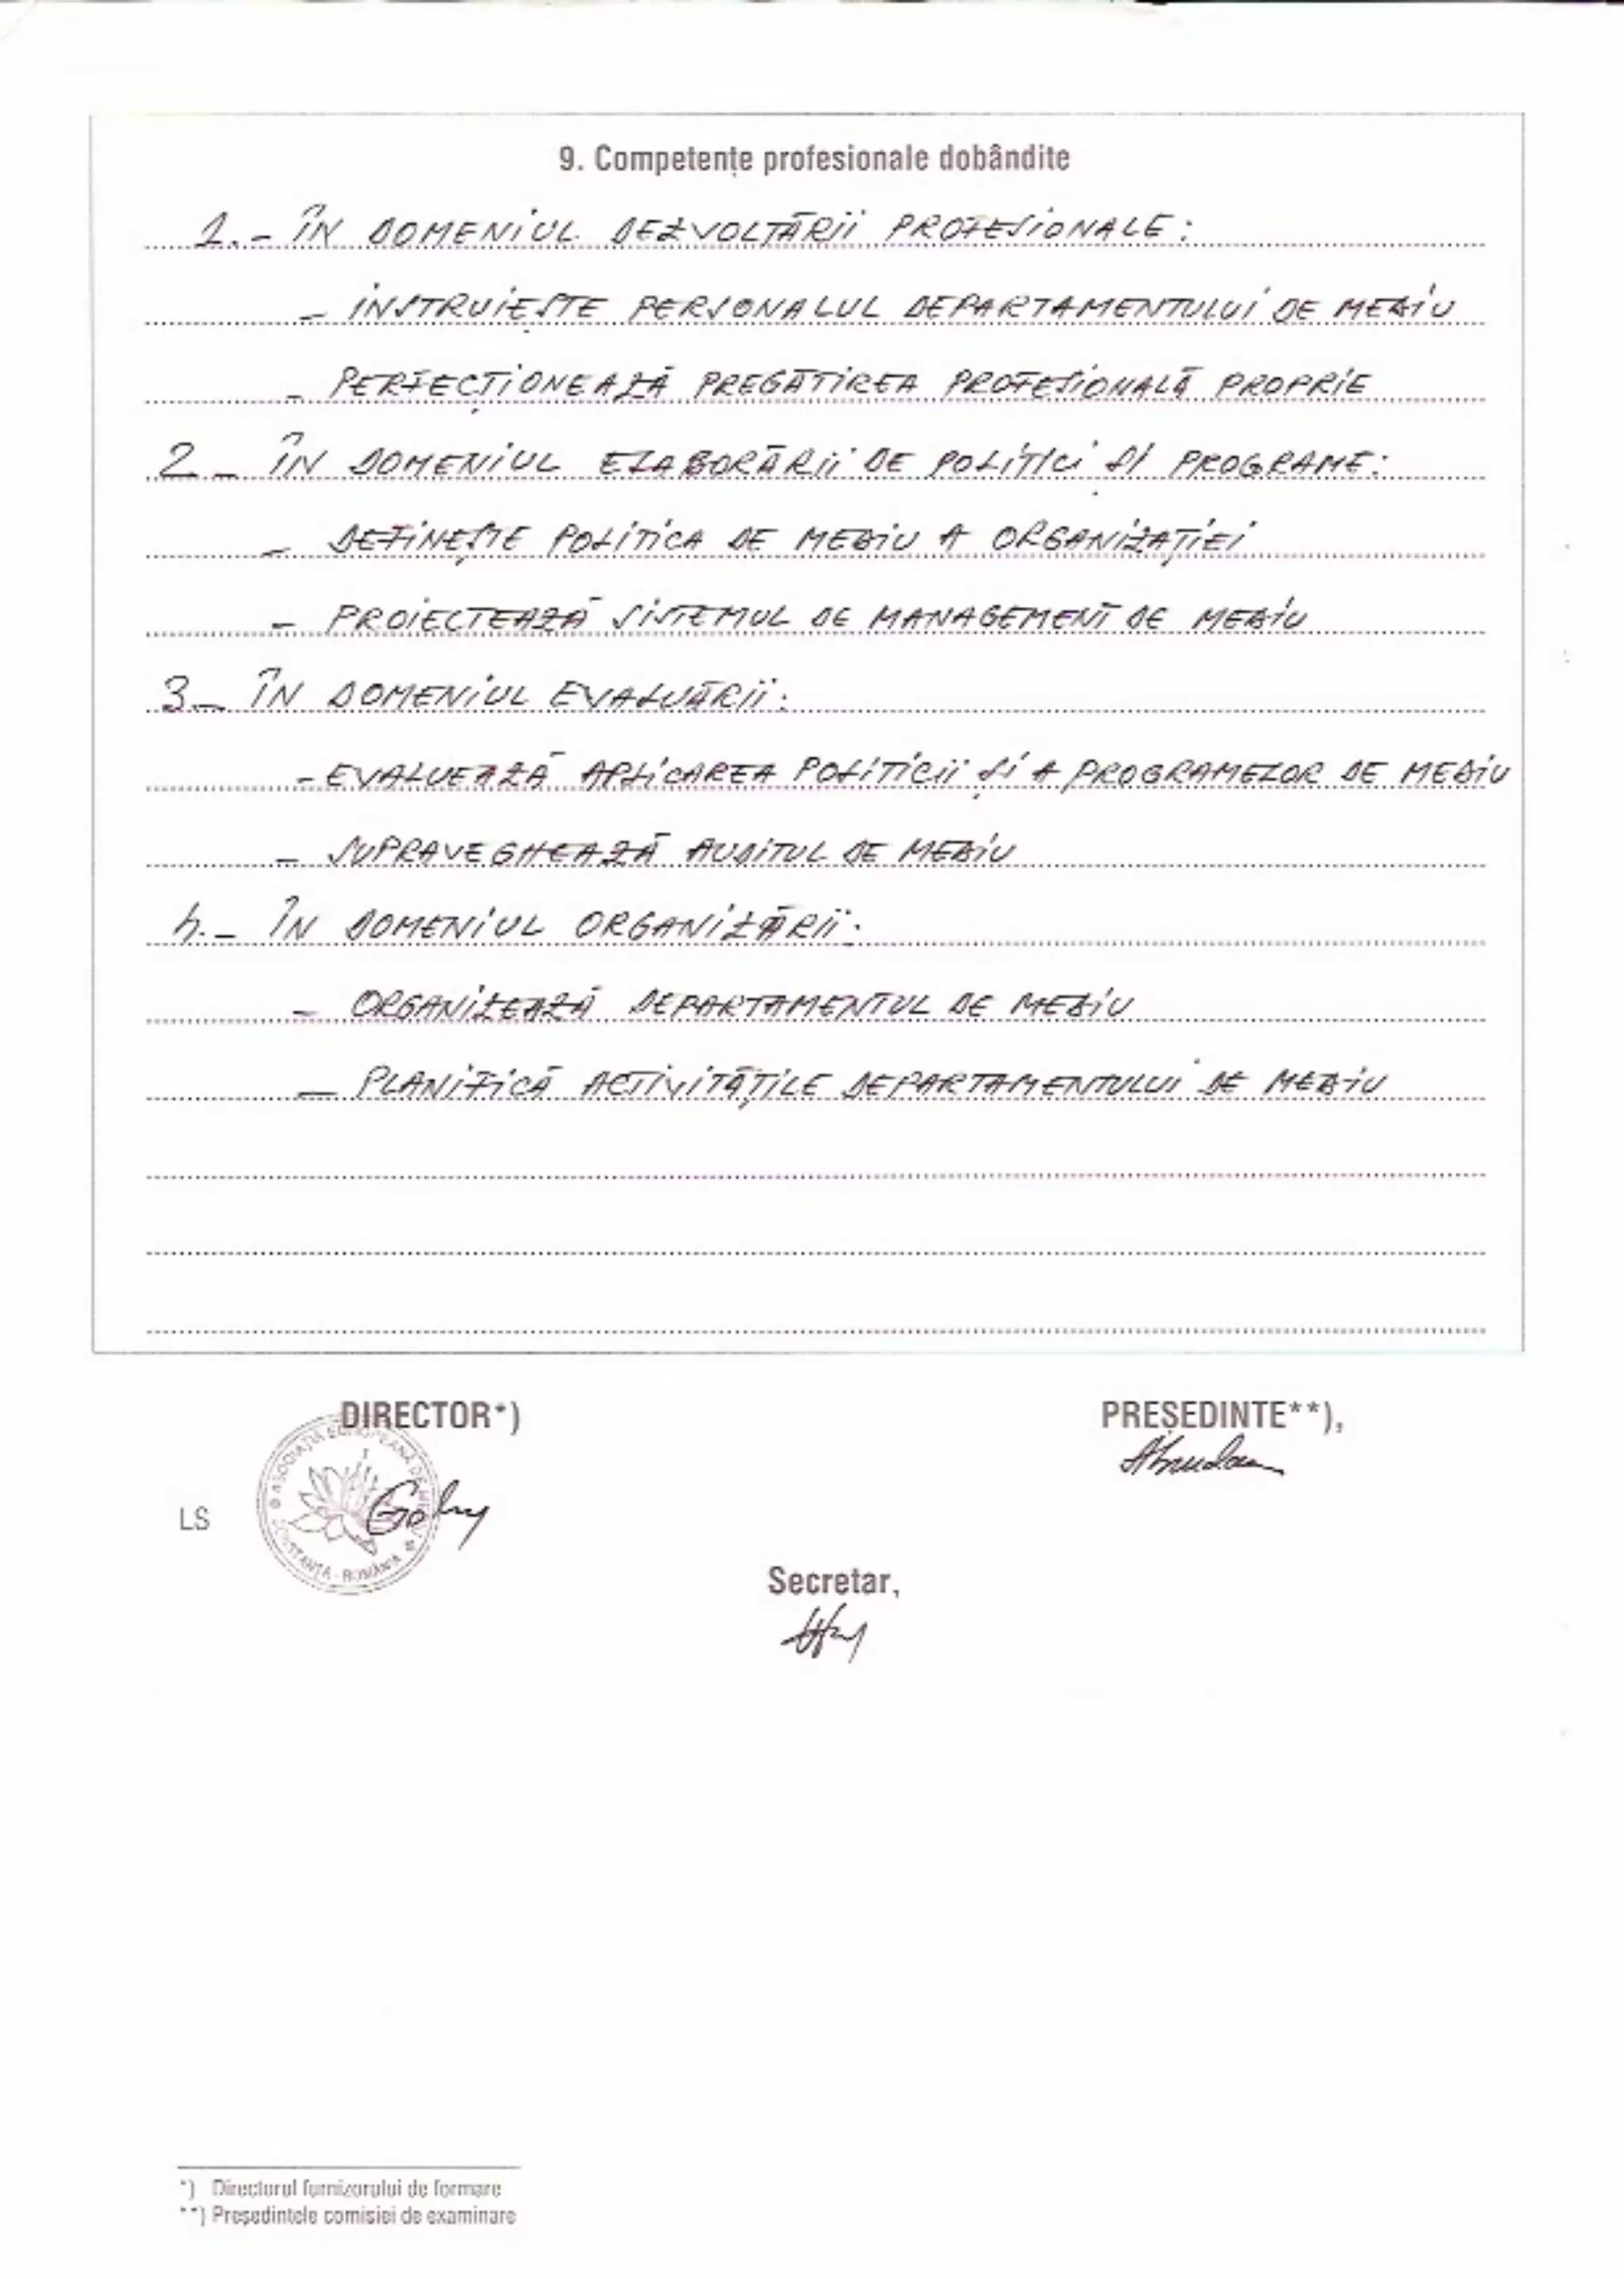 9. Competențe profesionale dobândite
1.- ÎN DOMENIUL DEZVOLTĂRII PROFESIONALE:
- INSTRUIEȘTE PERSONALUL DEPARTAMENTULUI DE MEDIU
- PERFECȚIONEAZĂ PREGĂTIREA PROFESIONALĂ PROPRIE
2 - ÎN DOMENIUL ELABORĂRII DE POLITICI ȘI PROGRAME:
- DEFINEȘTE POLITICA DE MEDIU A ORGANIZAȚIEI
- PROIECTEAZĂ SISTEMUL DE MANAGEMENT DE MEDIU
3 - ÎN DOMENIUL EVALUĂRII:
- EVALUEAZĂ APLICAREA POLITICII ȘI A PROGRAMELOR DE MEDIU
- SUPRAVEGHEAZĂ AUDITUL DE MEDIU
4.- ÎN DOMENIUL ORGANIZĂRII:
- ORGANIZEAZĂ DEPARTAMENTUL DE MEDIU
- PLANIFICĂ ACTIVITĂȚILE DEPARTAMENTULUI DE MEDIU
DIRECTOR*)
PREȘEDINTE**),
ASOCIAȚIA EUROPEANĂ DE
CONSTANȚA - ROMÂNIA
LS
Secretar,
*) Directorul furnizorului de formare
**) Președintele comisiei de examinare